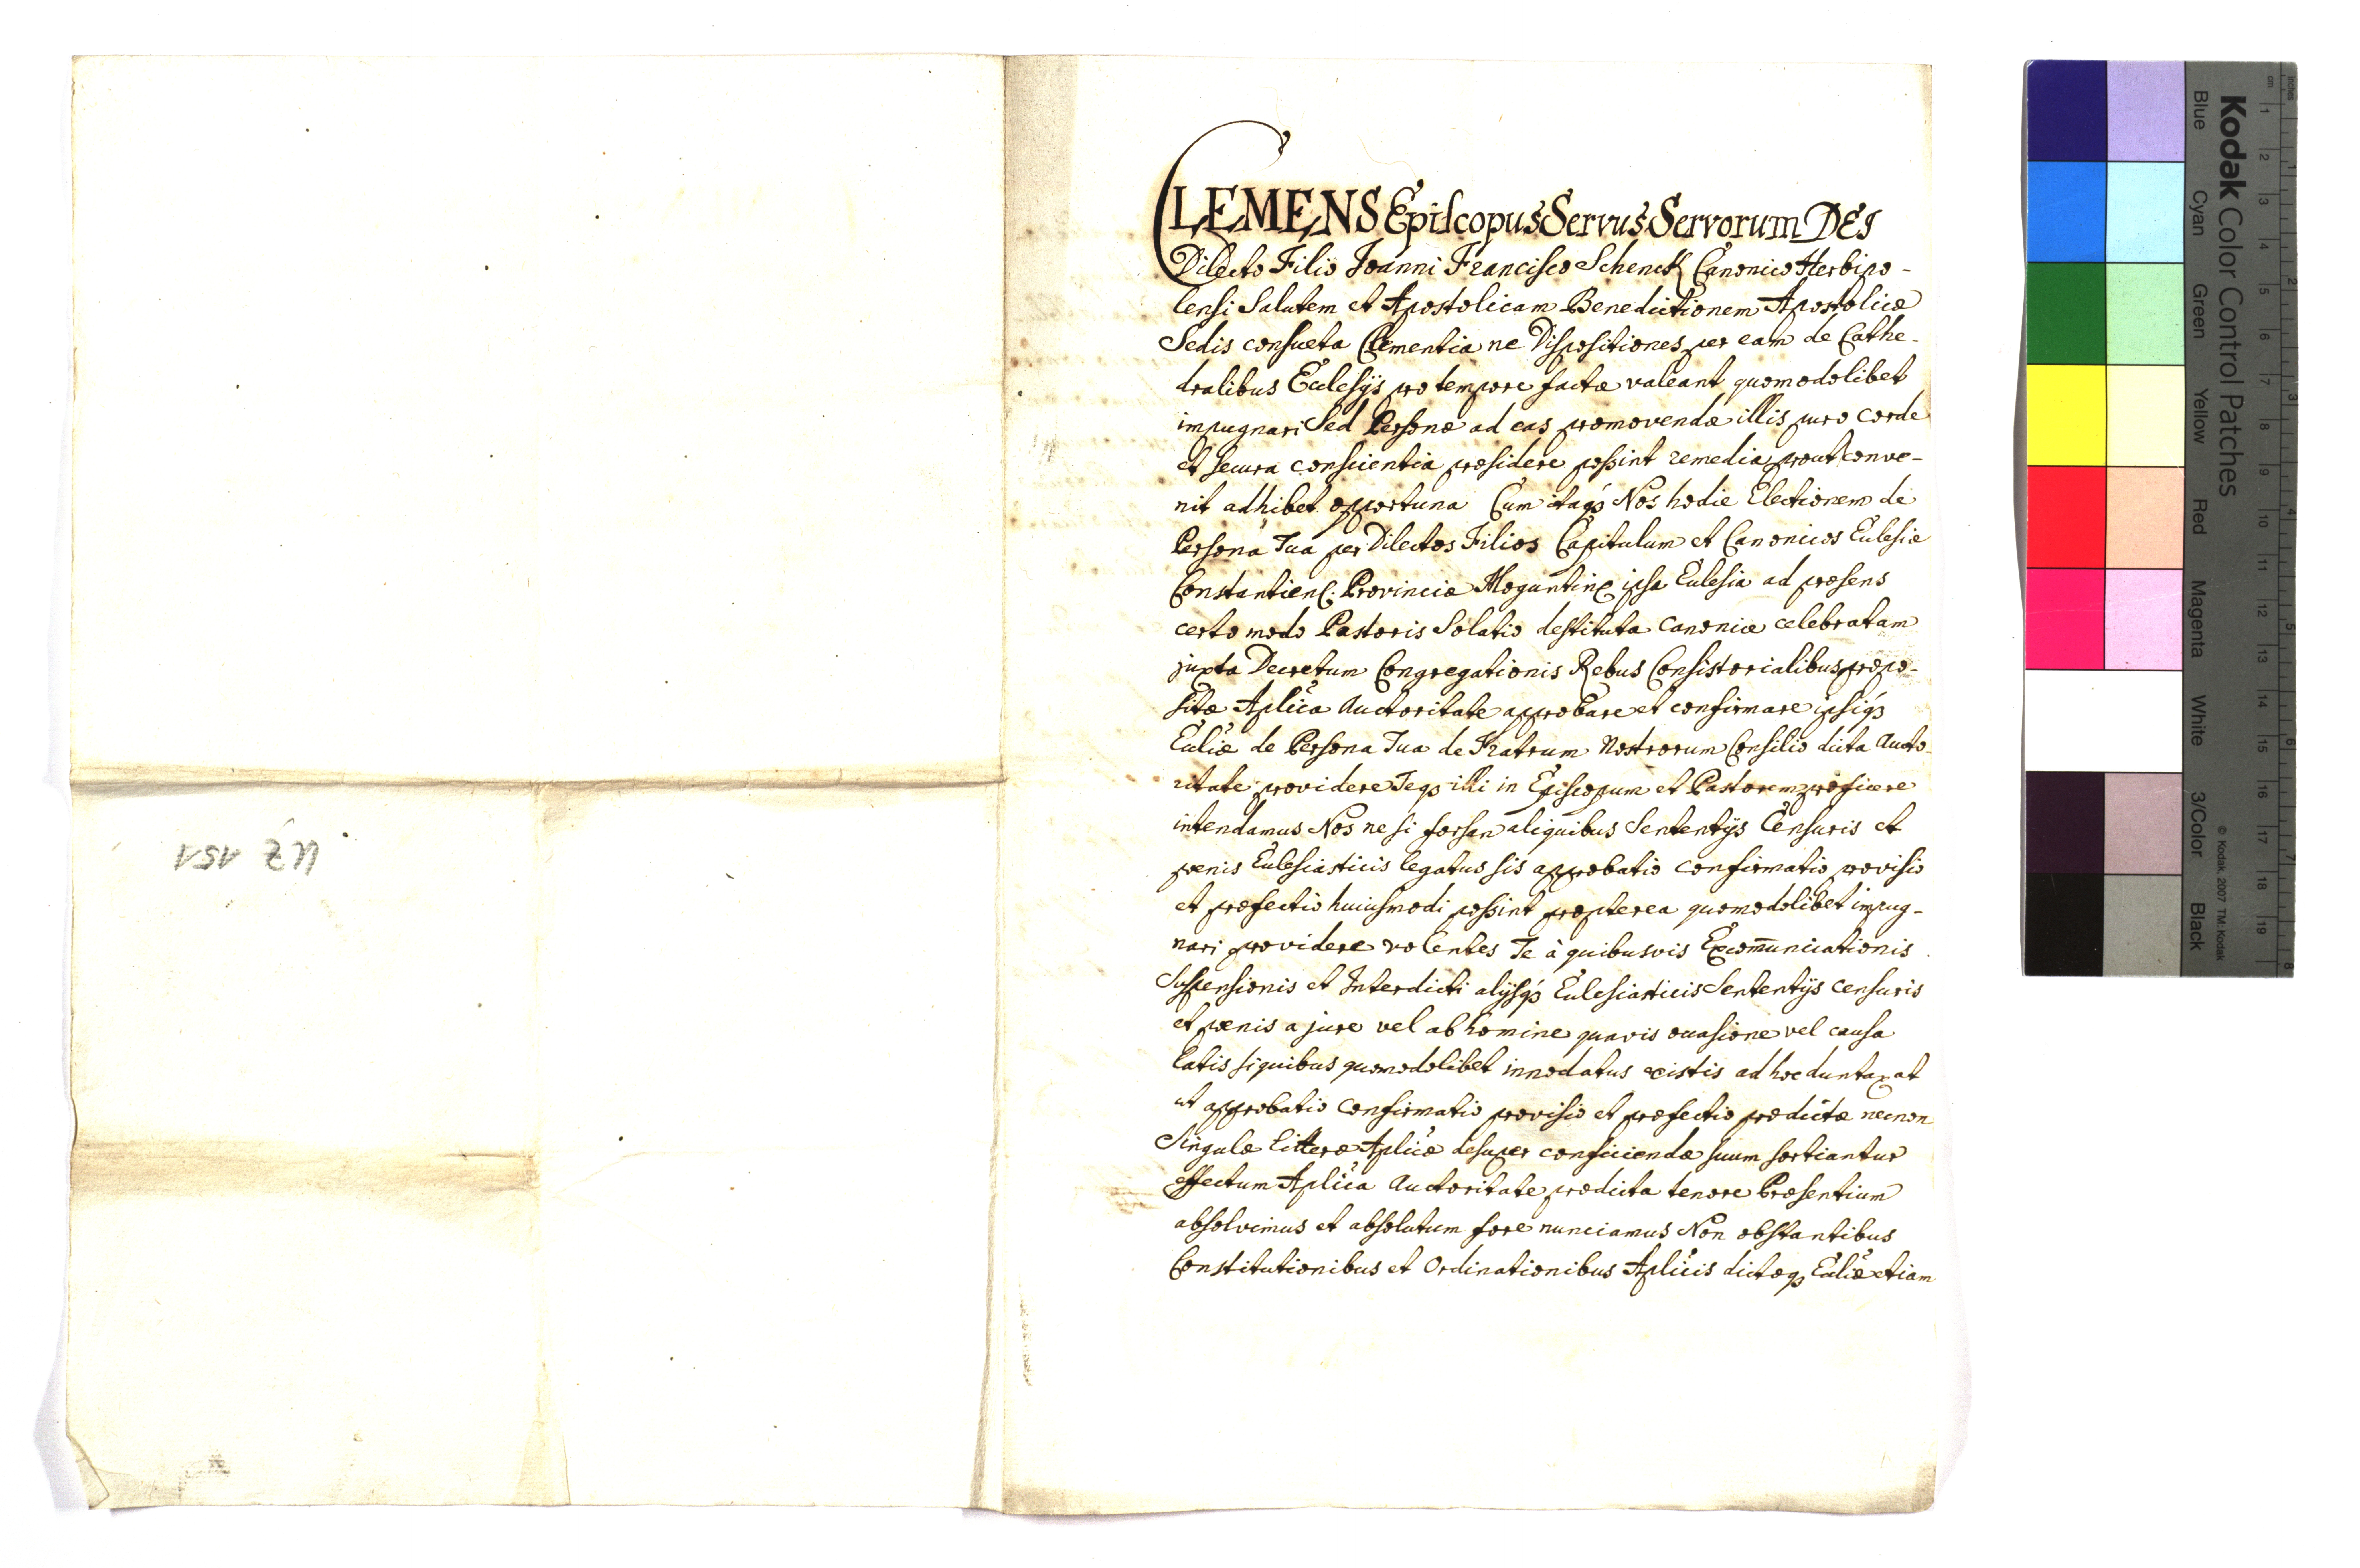 UZ 151
CLEMENS Episcopus Servus Servorum DEI
Dilecto Filio Joanni Francisco Schenck Canonico Herbipo-
lensi Salutem et Apostolicam Benedictionem Apostolicæ
Sedis consueta Clementia ne Dispositiones per eam de Cathe-
dralibus Ecclesijs pro tempore factæ valeant quomodolibet
impugnari Sed Personæ ad eas promovendæ illis puro corde
et secura conscientia præsidere possint remedia prout conve-
nit adhibet opportuna Cum itaq3 Nos hodie Electionem de
Persona Tua per Dilectos Filios Capitulum et Canonicos Ecclesiæ
Constantien. Provinciæ Moguntinę ipsa Ecclesia ad præsens
certo modo Pastoris Solatio destituta canonice celebratam
juxta Decretum Congregationis Rebus Consistorialibus præpo-
sitæ Aplica Auctoritate approbare et confirmare ipsiq3
Eccliæ de Persona Tua de Fratrum Nostrorum Consilio dicta Aucto-
ritate providere Teq3 illi in Episcopum et Pastorem præficere
intendamus Nos ne si forsan aliquibus Sententijs Censuris et
pœnis Ecclesiasticis legatus sis approbatio confirmatio provisio
et præfectio huiusmodi possint propterea quomodolibet impug-
nari providere volentes Te à quibusvis Excom̄unicationis
Suspensionis et Interdicti alijsq3 Ecclesiasticis Sententijs censuris
et pœnis a jure vel ab homine quavis occasione vel causa
latis siquibus quomodolibet innodatus existis ad hoc duntaxat
ut approbatio confirmatio provisio et præfectio prædictæ necnon
Singulæ litteræ Aplicæ desuper conficiendæ suum sortiantur
effectum Aplica Auctoritate prædicta tenore Præsentium
absolvimus et absolutum fore nunciamus Non obstantibus
Constitutionibus et Ordinationibus Aplicis dictæq3 Eccliæ etiam
Kodak Color Control Patches
Blue Cyan Green Yellow Red Magenta White 3/Color Black
© Kodak, 2007 TM: Kodak
inches 1 2 3 4 5 6 7 8
cm 1 2 3 4 5 6 7 8 9 10 11 12 13 14 15 16 17 18 19